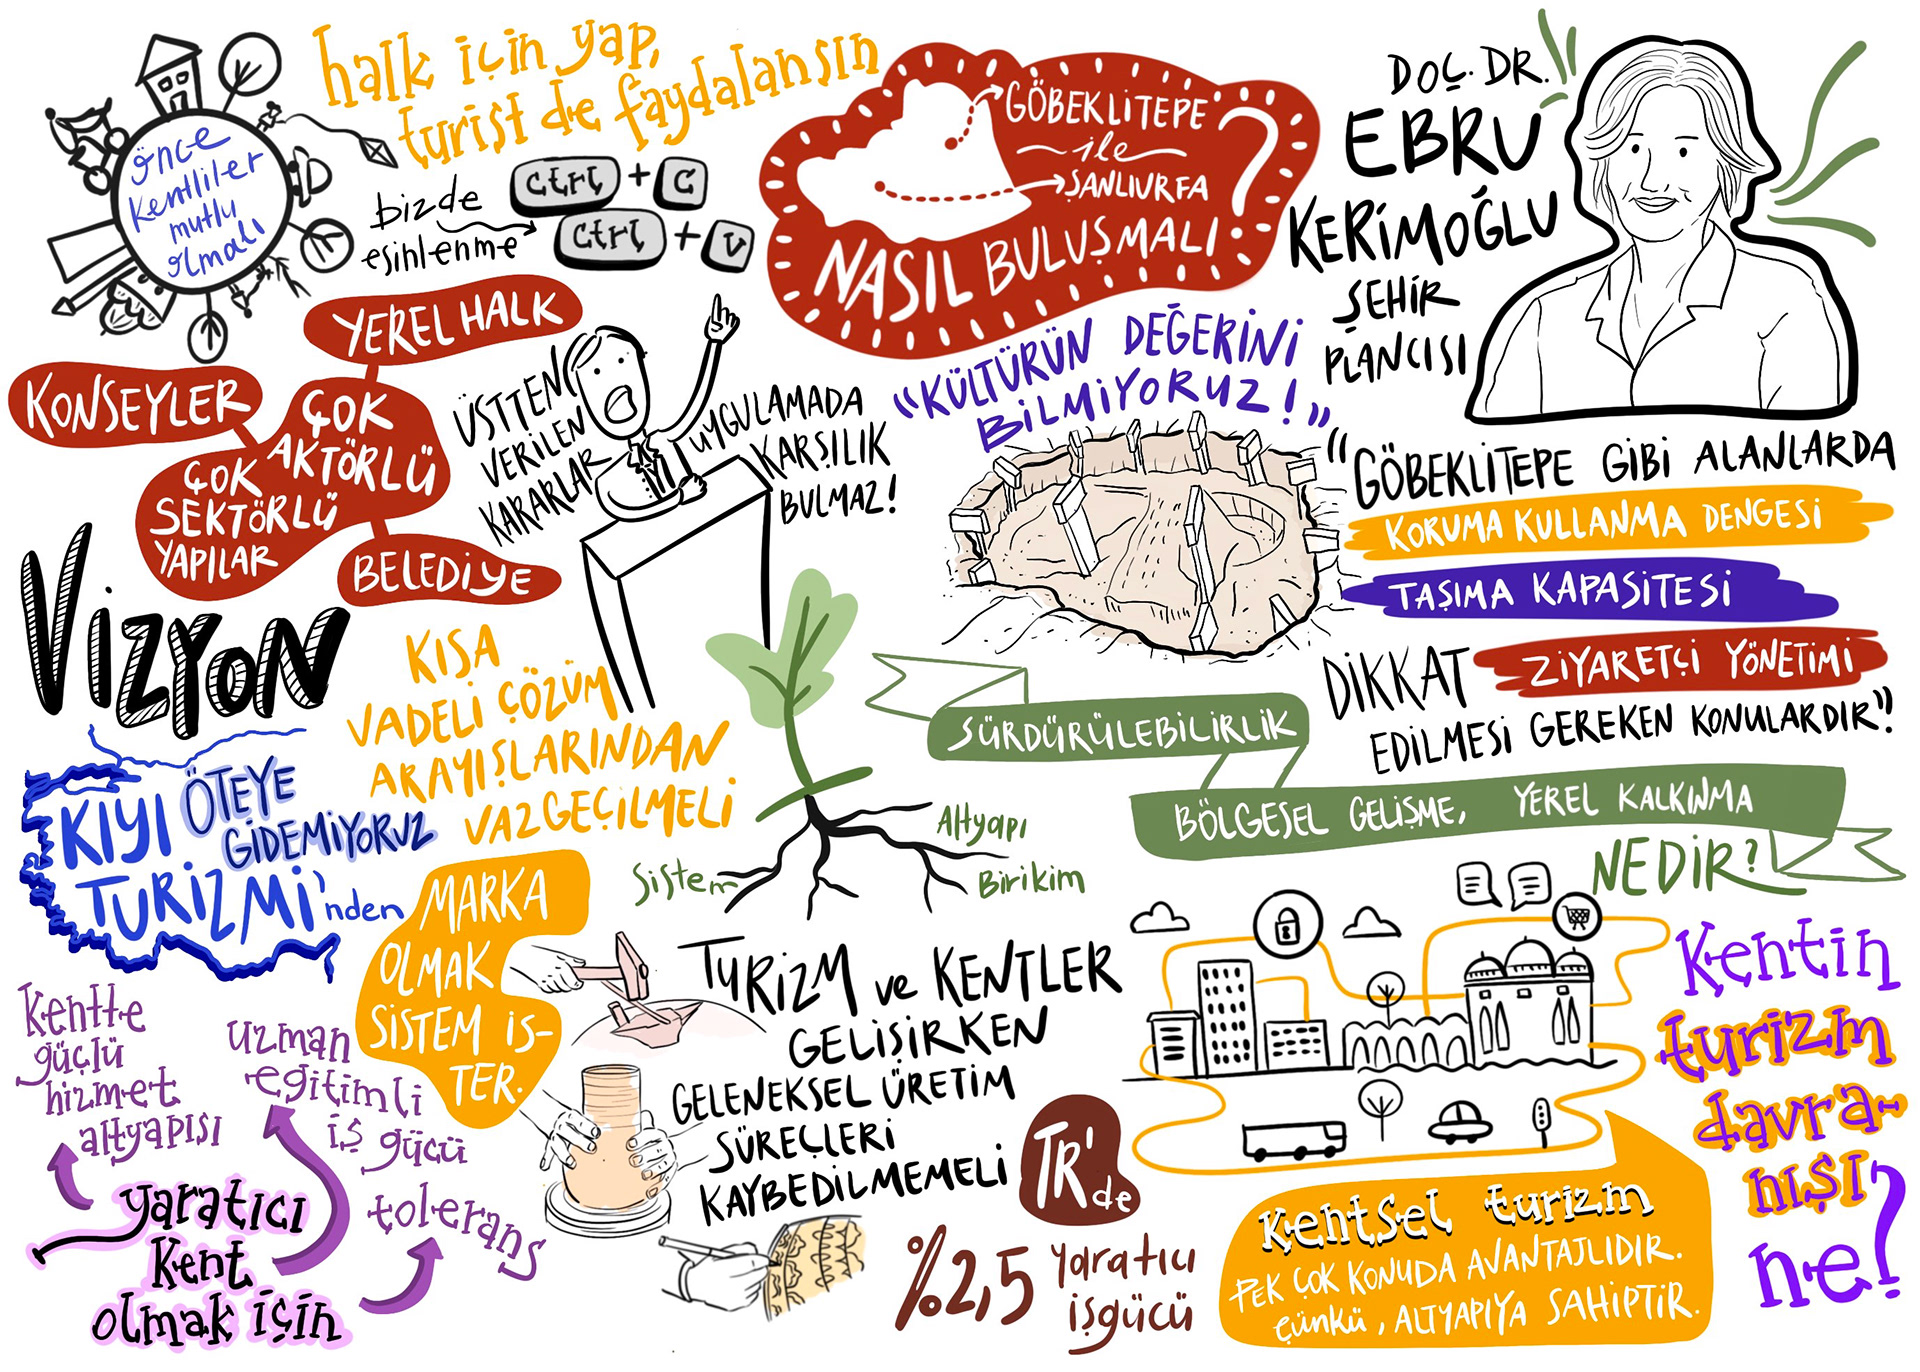 önce
kentliler
mutlu
olmalı
halk için yap,
turist de faydalansın
bizde
esinlenme
ctrl + C
ctrl + V
GÖBEKLİTEPE
ile
ŞANLIURFA
NASIL BULUŞMALI?
DOÇ. DR.
EBRU
KERİMOĞLU
ŞEHİR
PLANCISI
YEREL HALK
KONSEYLER
ÇOK
AKTÖRLÜ
ÇOK
SEKTÖRLÜ
YAPILAR
BELEDİYE
ÜSTTEN
VERİLEN
KARARLAR
UYGULAMADA
KARŞILIK
BULMAZ!
"KÜLTÜRÜN DEĞERİNİ
BİLMİYORUZ!"
"GÖBEKLİTEPE GİBİ ALANLARDA
KORUMA KULLANMA DENGESİ
TAŞIMA KAPASİTESİ
ZİYARETÇİ YÖNETİMİ
DİKKAT
EDİLMESİ GEREKEN KONULARDIR"!
VİZYON
KISA
VADELİ ÇÖZÜM
ARAYIŞLARINDAN
VAZGEÇİLMELİ
SÜRDÜRÜLEBİLİRLİK
BÖLGESEL GELİŞME, YEREL KALKINMA
NEDİR?
KIYI
TURİZMİ'nden
ÖTEYE
GİDEMİYORUZ
Sistem
Altyapı
Birikim
MARKA
OLMAK
SİSTEM İS-
TER.
TURİZM ve KENTLER
GELİŞİRKEN
GELENEKSEL ÜRETİM
SÜREÇLERİ
KAYBEDİLMEMELİ
Kentte
güçlü
hizmet
altyapısı
uzman
eğitimli
iş gücü
tolerans
yaratıcı
kent
olmak için
TR'de
%2,5 yaratıcı
işgücü
Kentin
turizm
davra-
nışı
ne?
Kentsel turizm
PEK ÇOK KONUDA AVANTAJLIDIR.
ÇÜNKÜ, ALTYAPIYA SAHİPTİR.